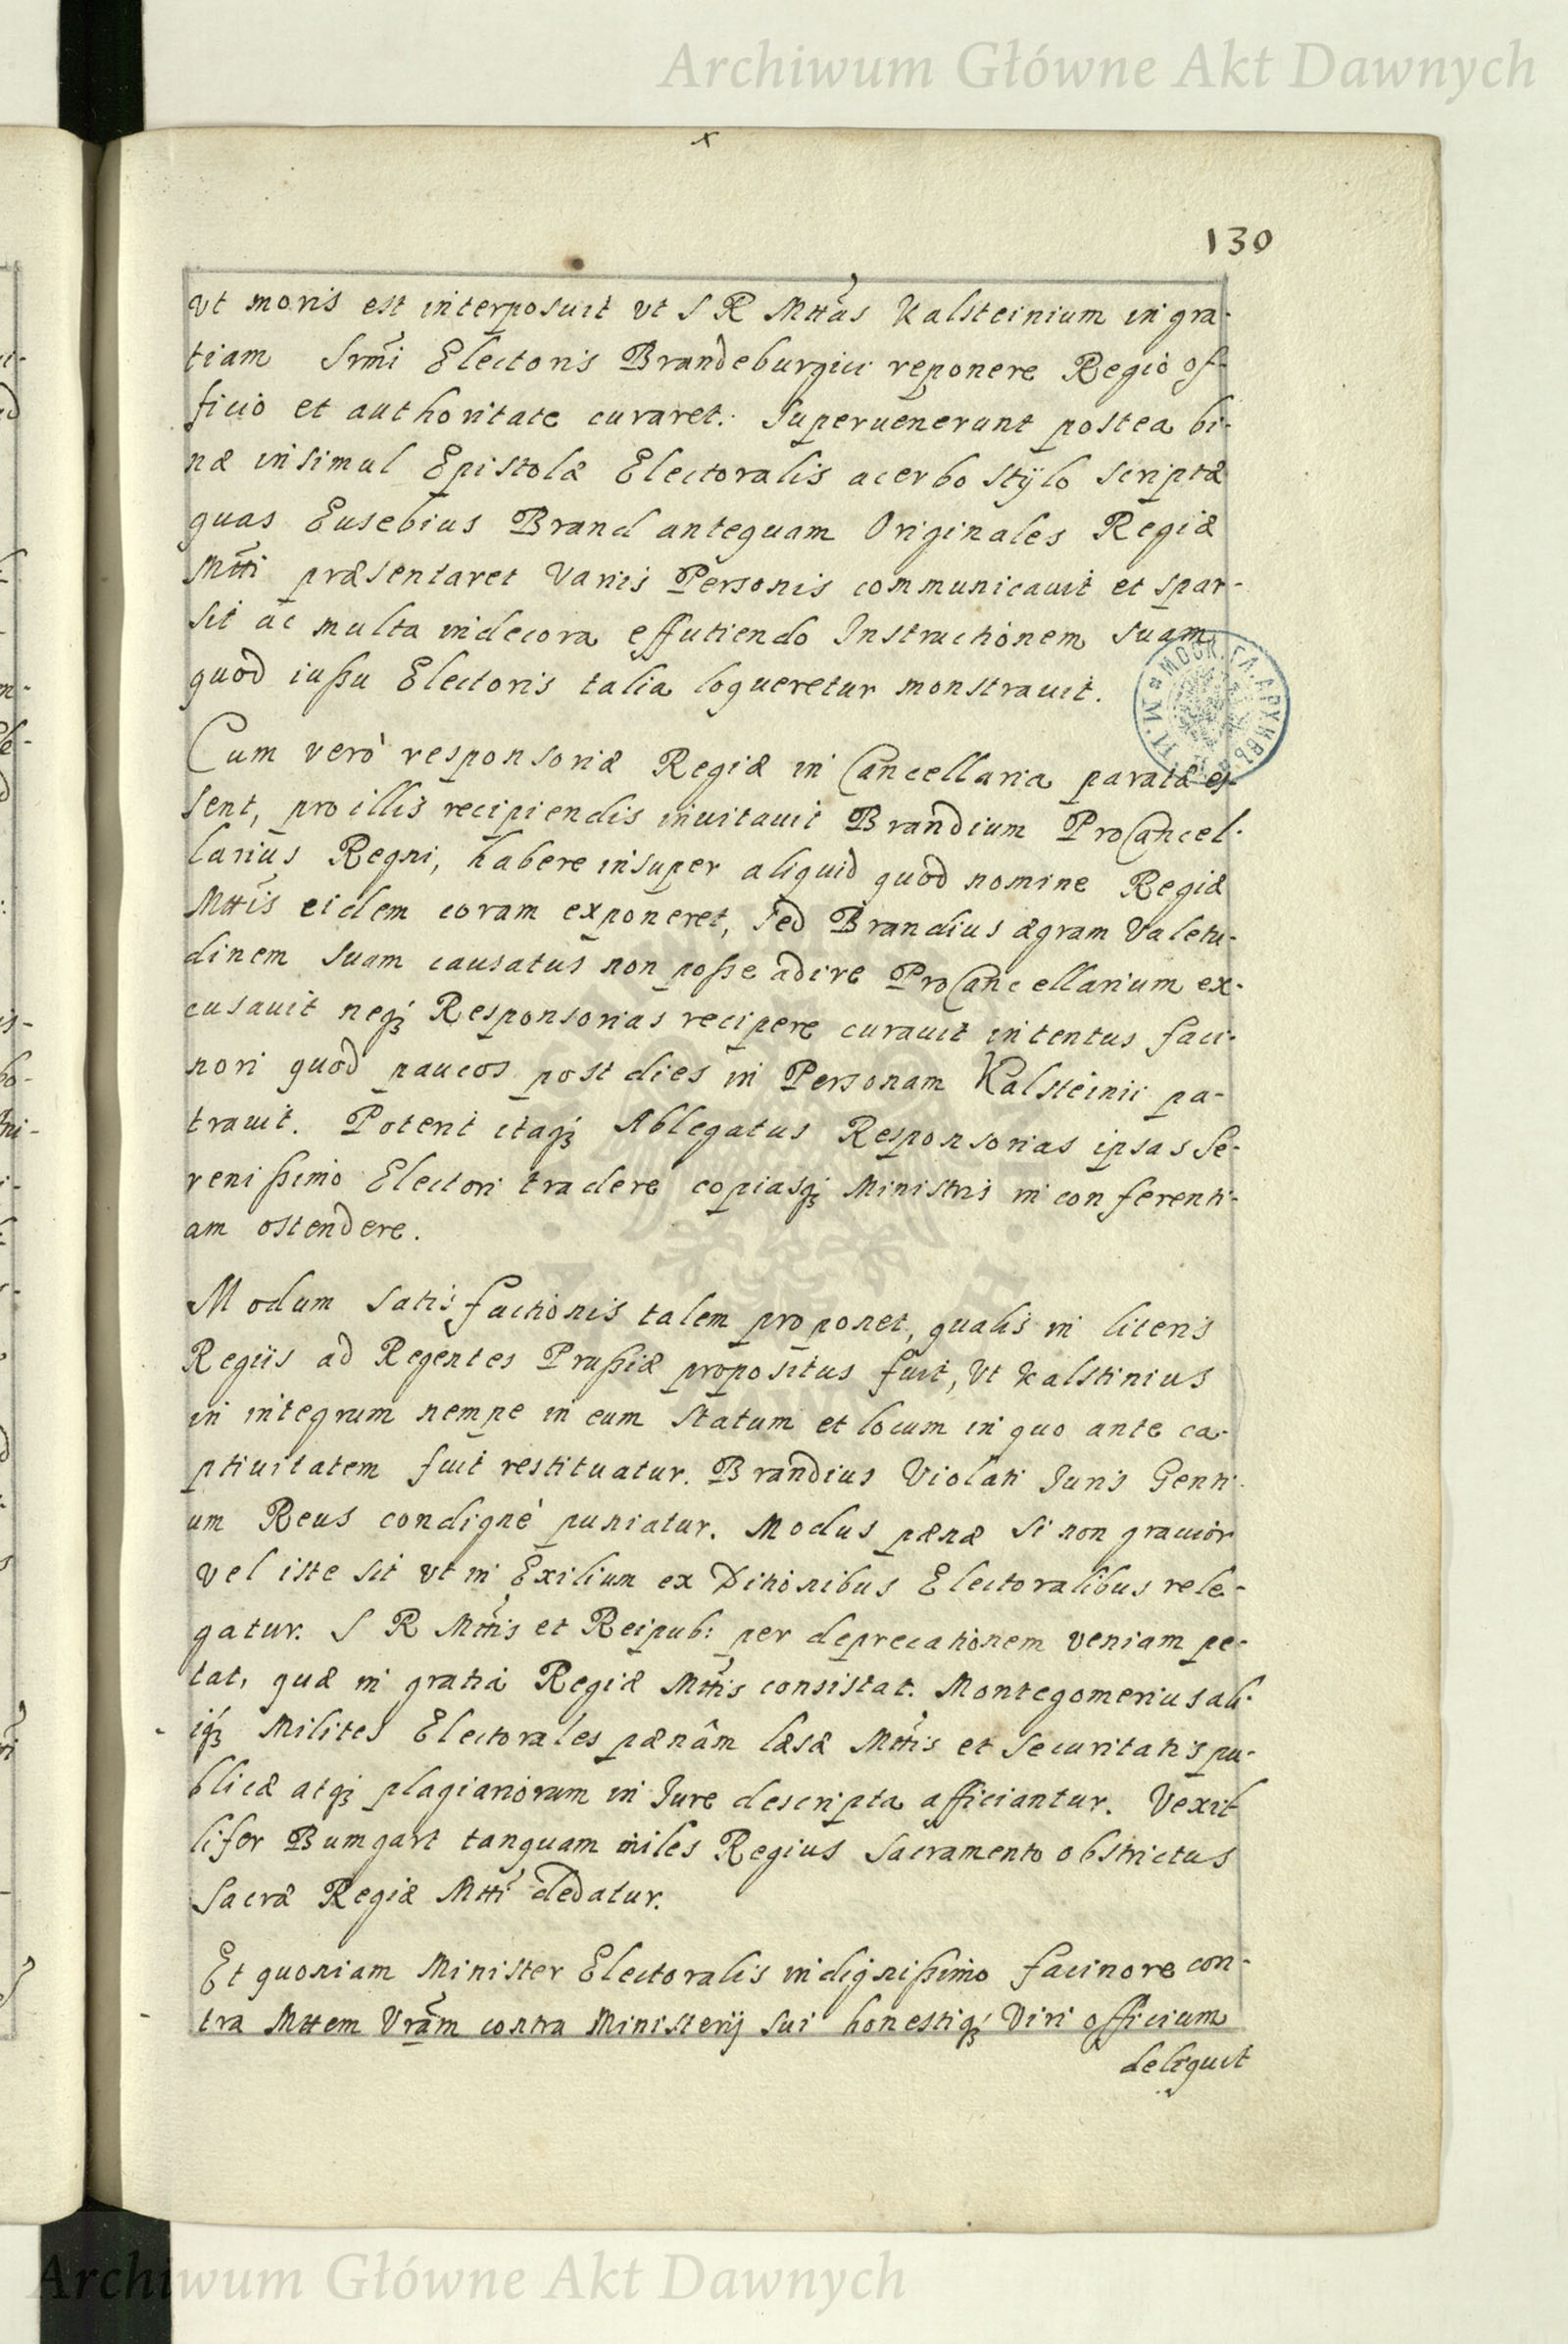 Archiwum Główne Akt Dawnych
x
130
vt moris est interposuit vt S R Mttas Kalsteinium in gra-
tiam Srmi Electoris Brandeburgici reponere Regiò of-
ficiò et authoritate curaret. Superuenerunt postea bi-
næ insimul Epistolæ Electoralis acerbo stÿlo scriptæ
quas Eusebius Brand antequam Originales Regiæ
Mtti præsentaret Varijs Personis communicauit et spar-
sit ac multa indecora effutiendo Instructionem suam
quod iußu Electoris talia loqueretur monstrauit.
Cum verò responsoriæ Regiæ in Cancellaria paratæ es-
sent, pro illis recipiendis inuitauit Brandium ProCancel-
larius Regni, habere insuper aliquid quod nomine Regiæ
Mttis eidem coram exponeret, sed Brandius ægram Valetu-
dinem suam causatus non poße adire ProCancellarium ex-
cusauit neqꝫ Responsorias recipere curauit intentus faci-
nori quod paucos post dies in Personam Kalsteinii pa-
trauit. Poterit itaqꝫ Ablegatus Responsorias ipsas Se-
renißimo Electori tradere copiasqꝫ Ministris in conferenti-
am ostendere.
Modum satisfactionis talem proponet, qualis in literis
Regiis ad Regentes Prußiæ propositus fuit, Vt Kalstinius
in integrum nempe in eum statum et locum in quo ante ca-
ptiuitatem fuit restituatur. Brandius Violati Juris Genti-
um Reus condignè puniatur. Modus pænæ si non grauior
vel iste sit vt in Exilium ex Ditionibus Electoralibus rele-
gatur. S R Mttis et Reipub: per deprecationem veniam pe-
tat, quæ in gratiâ Regiæ Mttis consistat. Montegomerius ali-
iqꝫ Milites Electorales pænâm læsæ Mttis et Securitatis pu-
blicæ atqꝫ plagiariorum in Jure descripta afficiantur. Vexil
lifer Bumgart tanquam miles Regius Sacramento obstrictus
Sacræ Regiæ Mtti dedatur.
Et quoniam Minister Electoralis indignißimo facinore con-
tra Mttem Vram contra Ministerij sui honestiqꝫ Viri officium
deliquit
Archiwum Główne Akt Dawnych